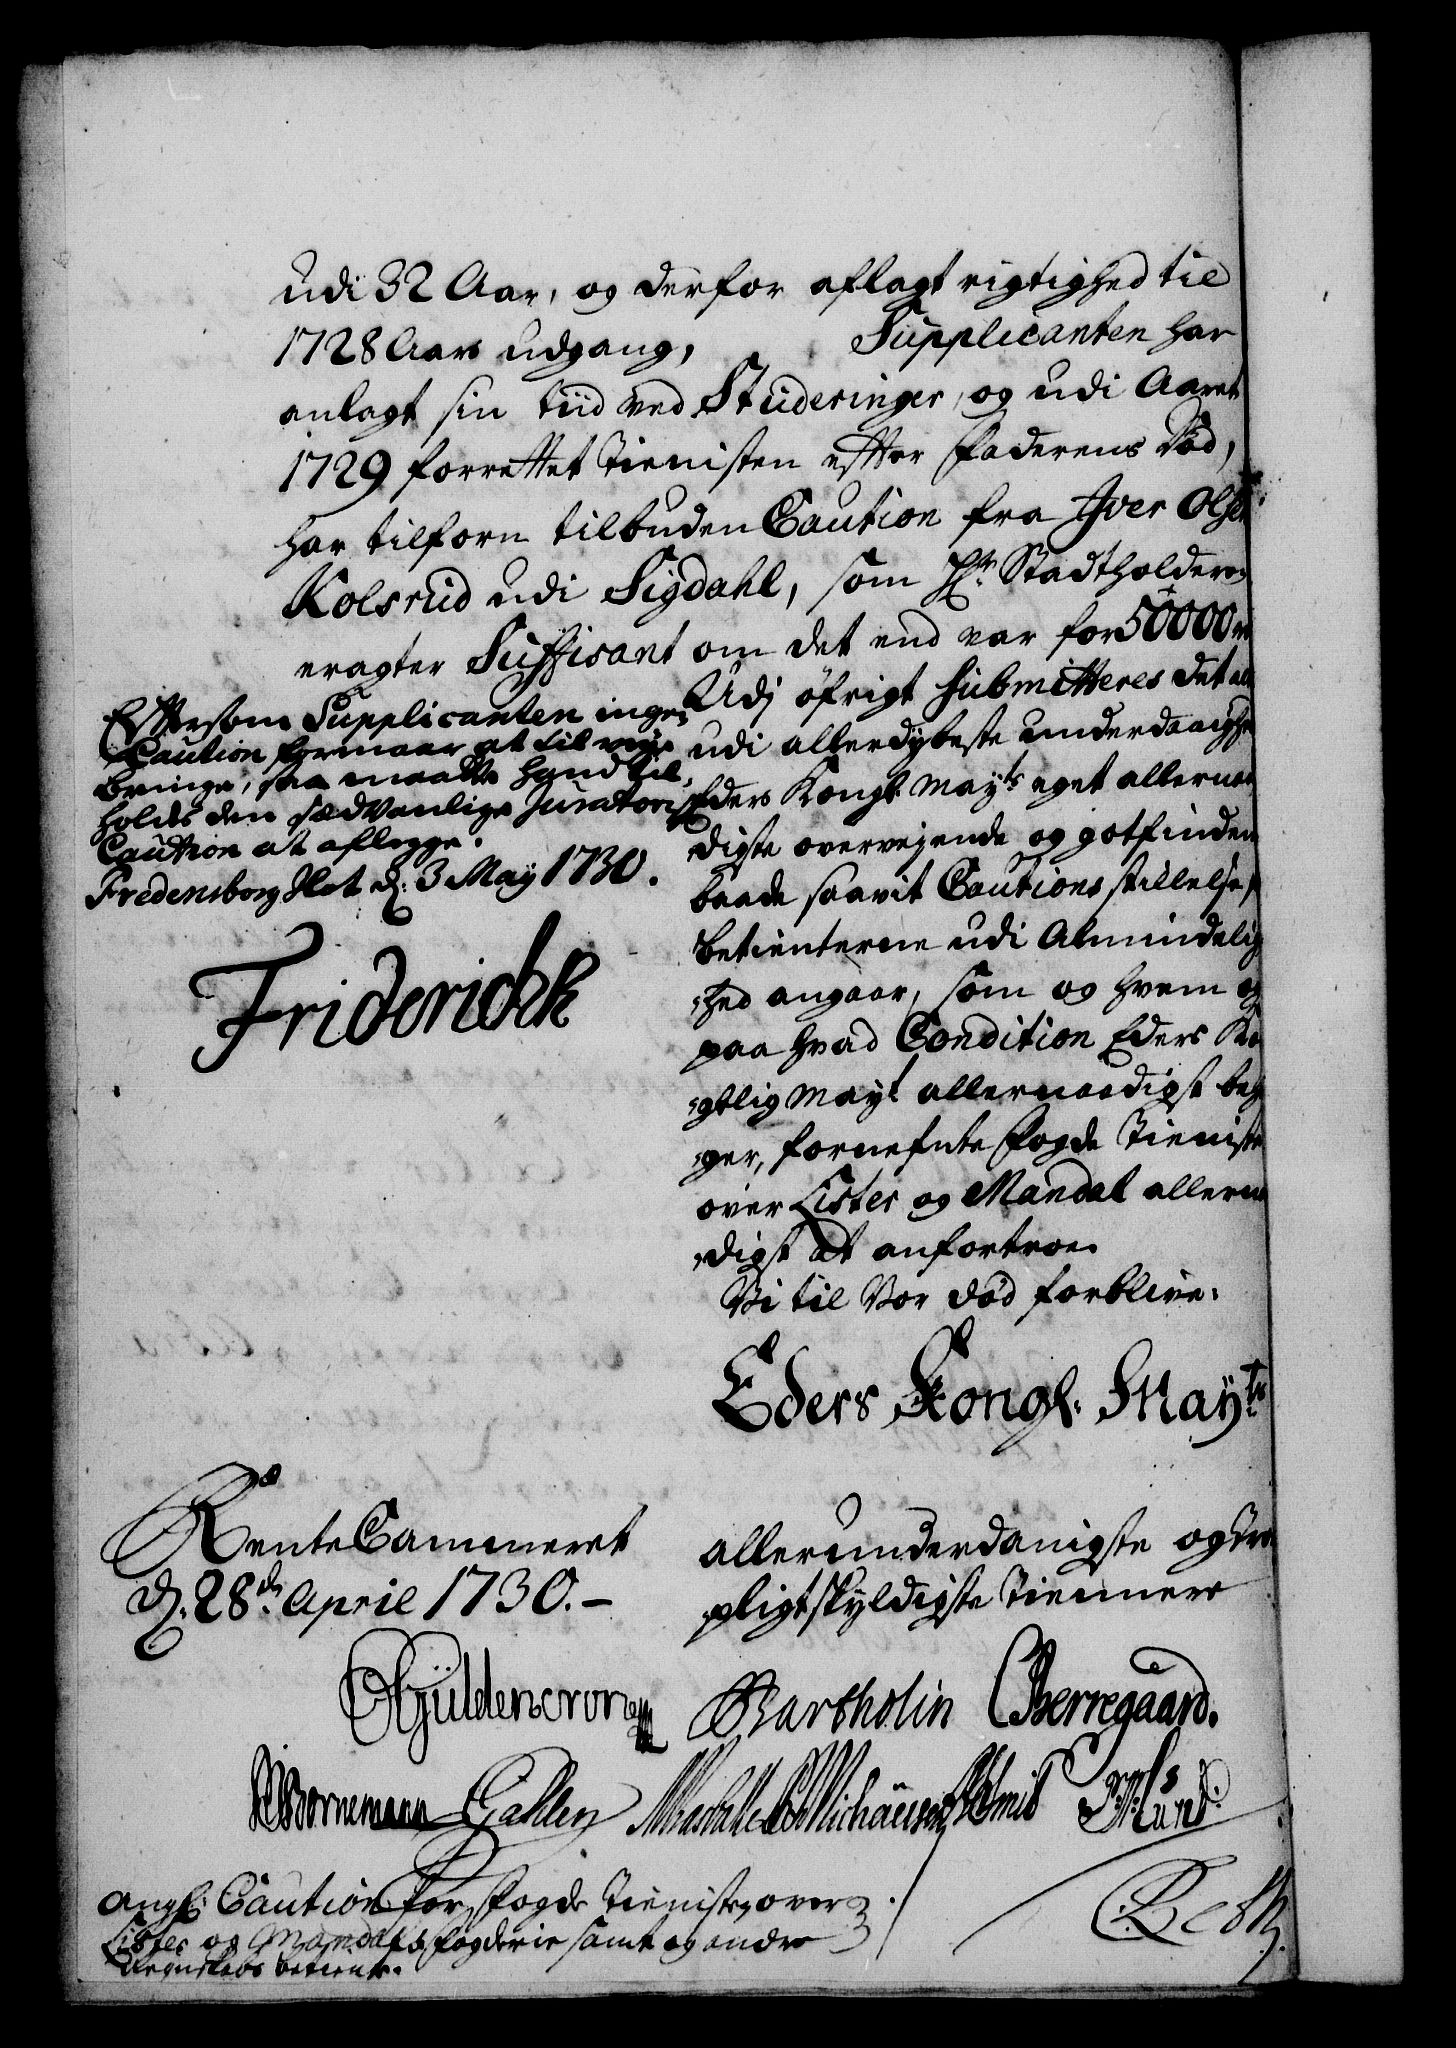 udi 32 Aar, og derfor aflagt rigtighed til
1728 Aars udgang, Supplicanten har
anlagt sin tiid ved Studeringer, og udi Aaret
1729 forrettet Tienisten efter Faderens Død,
har tilforn tilbuden Caution fra Iver Olsen
Kolsrud udi Sigdahl, som Hr. Stadtholderen
eragter Suffisant om det end var for 50000 rd
Udj øfrigt submitteres det alt
udi allerdybeste underdaanighed
Eders Kongl. Mayts eget allernaa
digste overvejende og gotfindende
baade saavit Cautions stillelse
betienterne udi Almindelig
=hed angaar, som og hvem og
paa hvad Condition Eders Ko
=gelig Mayt allernaadigst beha
=ger, fornefnte Fogde Tieniste
over Lister og Mandal allerna
=digst at anfortroe.
Vi til Vor død forblive.
Eders Kongl. Mayts
Eftersom Supplicanten ingen
Caution formaar at til veye
bringe, saa maatte hand til=
holdes den sædvanlige Juratoriske
Caution at aflegge.
Fredensborg Slot d: 3 May 1730.
Friderich R
Rente Cammeret
d. 28de April 1730.
allerunderdanigste og troe
pligtskyldigste Tiennere
Güldencrone Bartholin CBerregaard.
Bornemann Gahlen Michäelsen
Angl: Caution for Fogde Tienisten over
Lister og Mandals fogderie samt og andre
Regnskabs betiente.